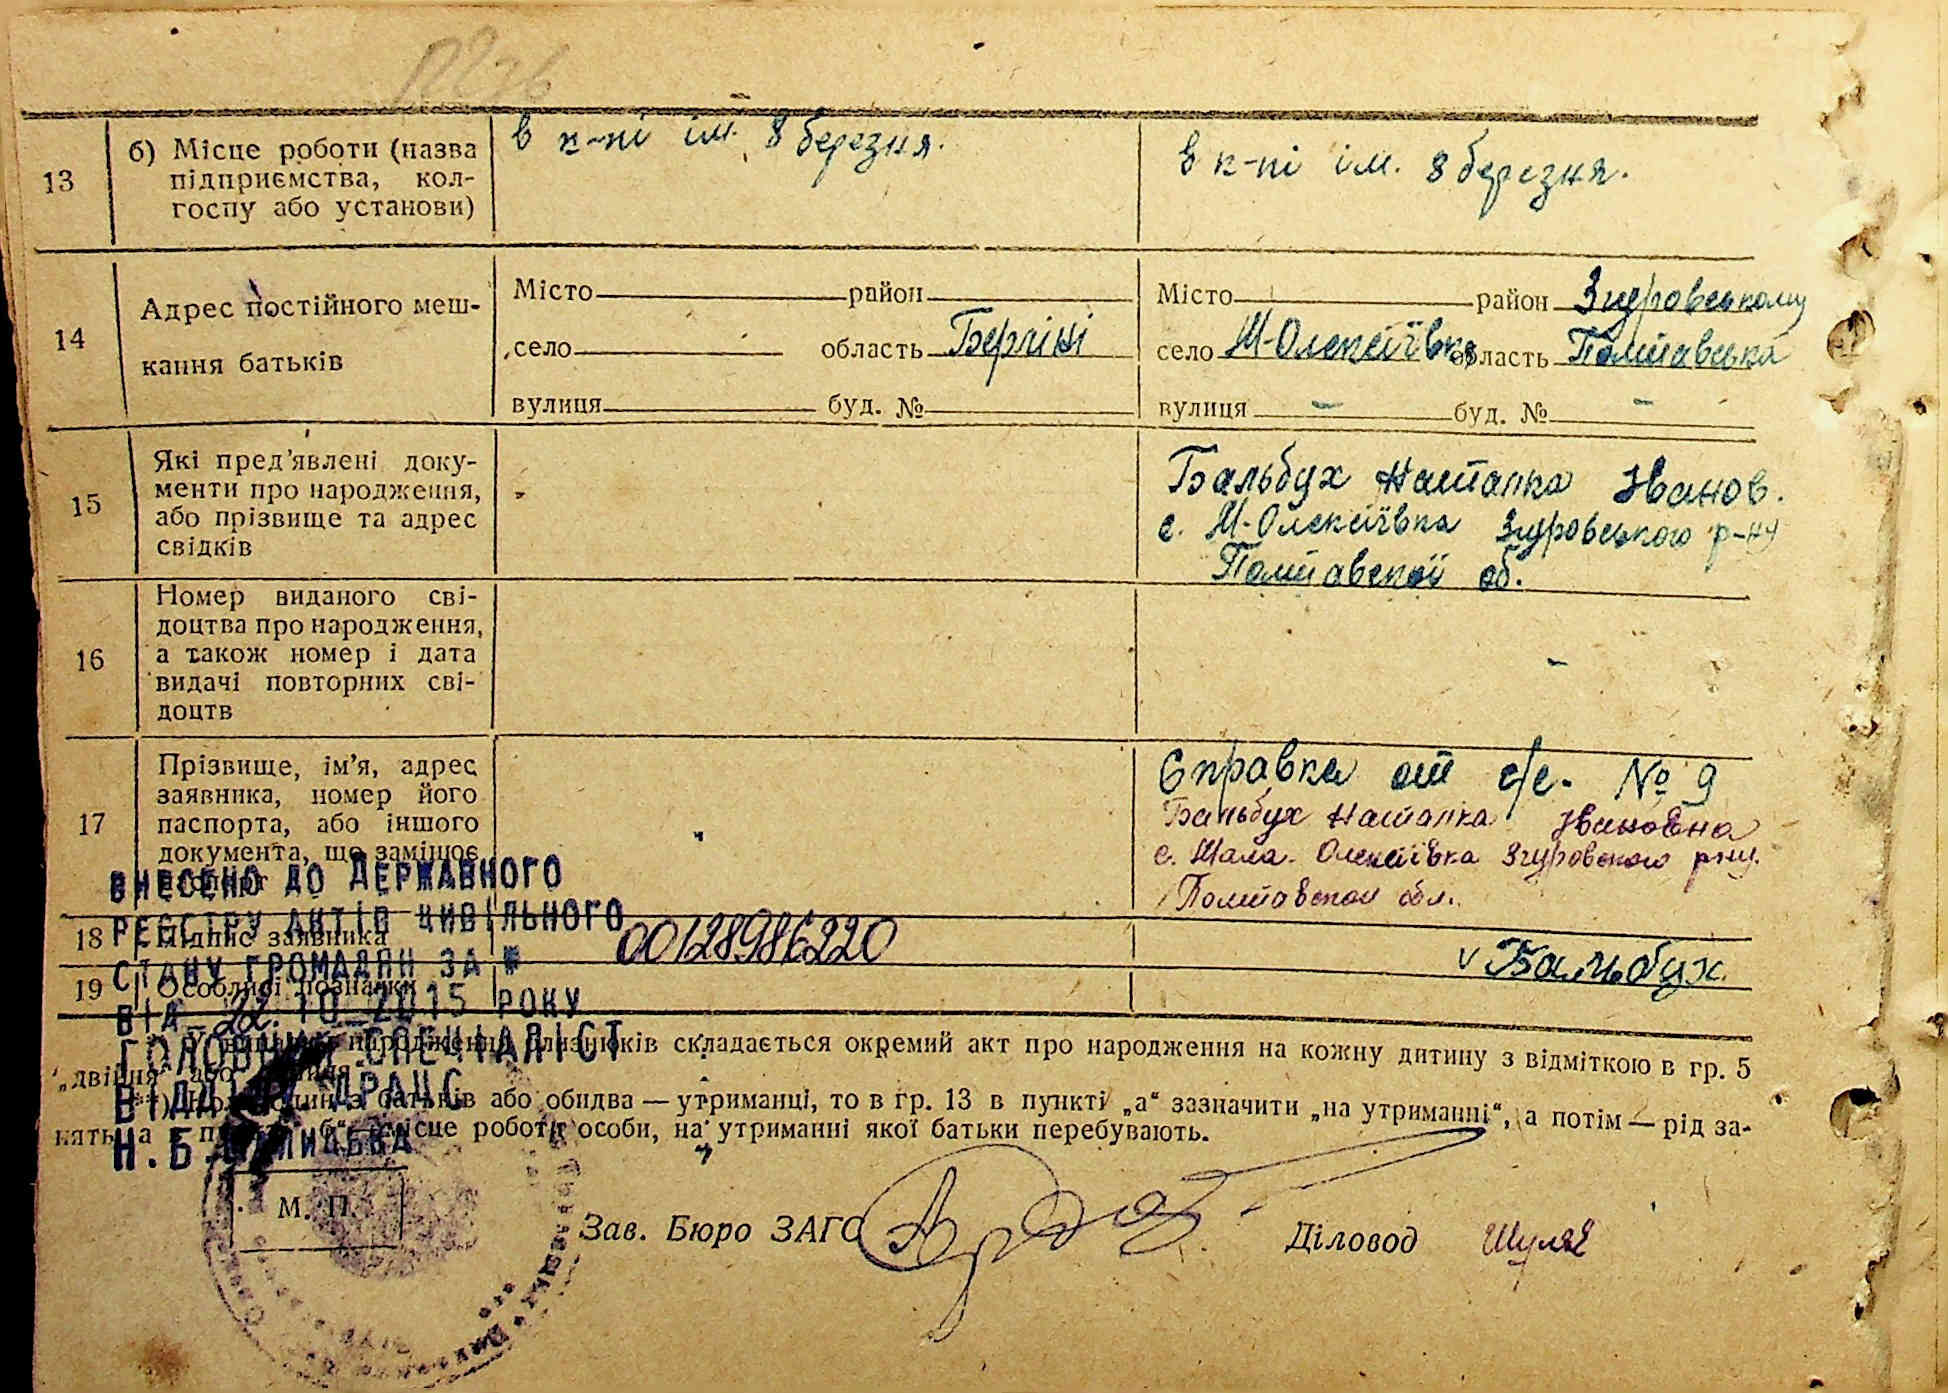 13
б) Місце роботи (назва
підприємства, кол-
госпу або установи)
в к-пі ім. 8 березня.
в к-пі ім. 8 березня.
14
Адрес постійного меш-
кання батьків
Місто район
село область Берліні
вулиця буд. №
Місто район Згуровському
село М-Олексіївка область Полтавська
вулиця - буд. № -
15
Які пред'явлені доку-
менти про народження,
або прізвище та адрес
свідків
Бальбух Наталка Іванов.
с. М-Олексіївка Згуровського р-ну
Полтавскої об.
16
Номер виданого сві-
доцтва про народження,
а також номер і дата
видачі повторних сві-
доцтв
17
Прізвище, ім'я, адрес
заявника, номер його
паспорта, або іншого
документа, що замінює
Справка от с/с. № 9
Бальбух Наталка Івановна
с. Мала-Олексіївка Згуровского рну.
Полтавскои обл.
18
Підпис заявника
v Бальбух
19
Особливі познанки
ВНЕСЕНО ДО ДЕРЖАВНОГО
РЕЄСТРУ АКТІВ ЦИВІЛЬНОГО
СТАНУ ГРОМАДЯН ЗА № 00128986220
ВІД 22.10 2015 РОКУ
ГОЛОВНИЙ СПЕЦІАЛІСТ
ВІДДІЛУ ДРАЦС
Н.Б.
народження близнюків складається окремий акт про народження на кожну дитину з відміткою в гр. 5
„двійня" або
один з батьків або обидва — утриманці, то в гр. 13 в пункті „а" зазначити „на утриманні", а потім — рід за-
нять, а місце роботи особи, на утриманні якої батьки перебувають.
М. П.
Зав. Бюро ЗАГС
Діловод Шуляк